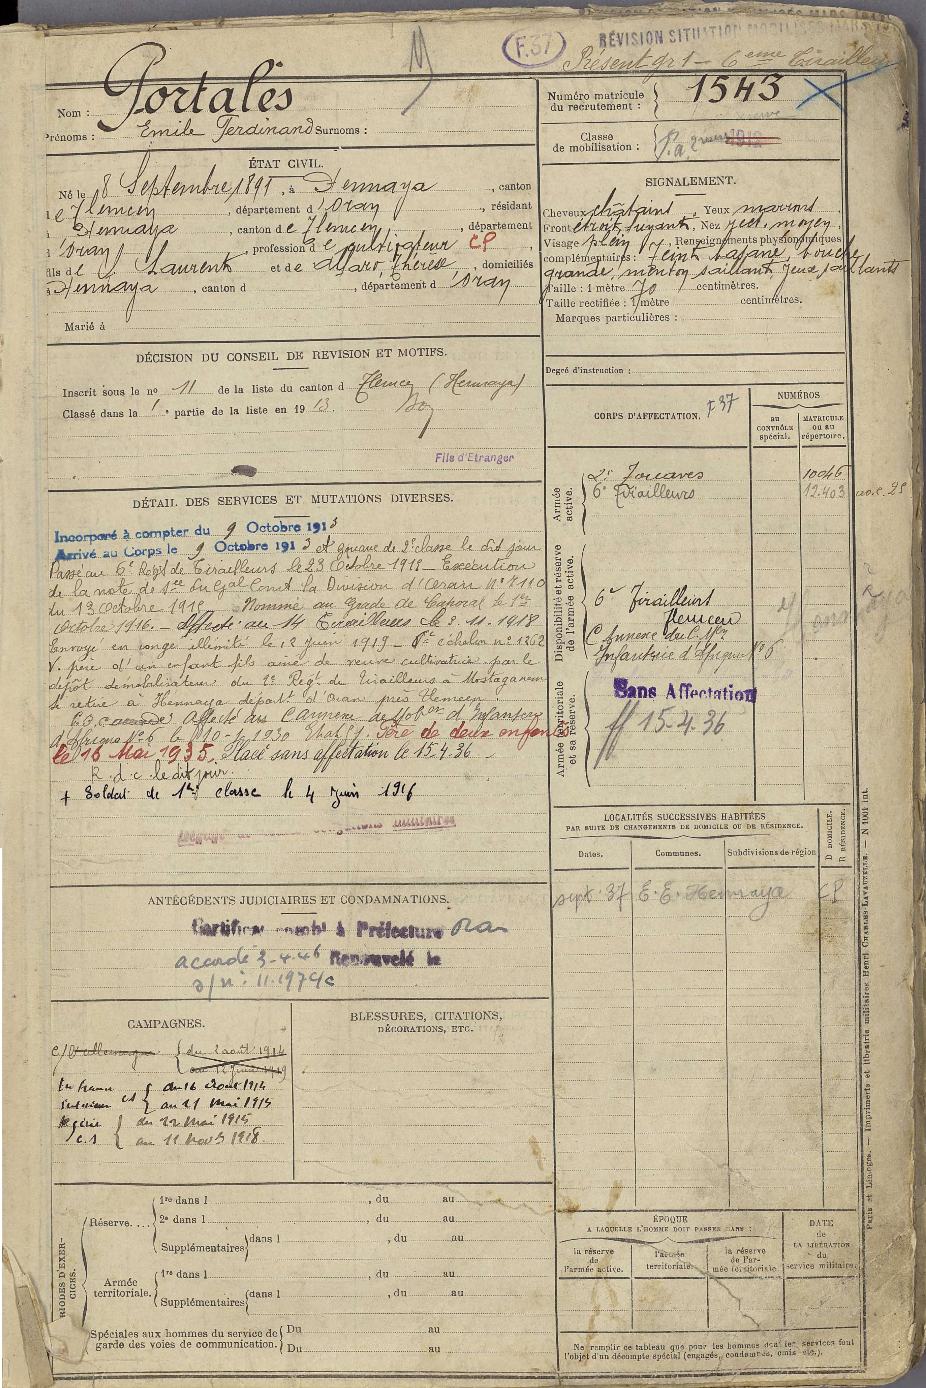 F.37
RÉVISION SITUATION
Présent gr 1 — 6eme Tirailleurs
Nom : Portalès
Prénoms : Emile Ferdinand Surnoms :
Numéro matricule du recrutement : 1543
Classe de mobilisation :
ÉTAT CIVIL.
Né le 8 Septembre 1891, à Hennaya, canton
de Tlemcen, département d'Oran, résidant
à Hennaya, canton de Tlemcen, département
d'Oran, profession de cultivateur CP
fils de Laurent et de Alfaro, Thérèse, domiciliés
à Hennaya, canton d , département d'Oran
Marié à
SIGNALEMENT.
Cheveux châtains, Yeux marrons
Front étroit, fuyant, Nez rect. moyen
Visage plein, Renseignements physionomiques
complémentaires : Teint basané, bouche
grande, menton saillant, yeux saillants
Taille : 1 mètre 70 centimètres.
Taille rectifiée : 1 mètre centimètres.
Marques particulières :
Degré d'instruction :
DÉCISION DU CONSEIL DE REVISION ET MOTIFS.
Inscrit sous le no 11 de la liste du canton d Tlemcen (Hennaya)
Classé dans la 1e partie de la liste en 1913. Bon
Fils d'Etranger
CORPS D'AFFECTATION. F 37
NUMÉROS
au CONTRÔLE spécial.
MATRICULE ou au répertoire.
Armée active.
2e Zouaves 10046
6e Tirailleurs 12.403
Disponibilité et réserve de l'armée active.
6e Tirailleurs
Tlemcen
C. Annexe de Mon
Infanterie d'Afrique No 6
Armée territoriale et sa réserve.
Sans Affectation
15.4.36
DÉTAIL DES SERVICES ET MUTATIONS DIVERSES.
Incorporé à compter du 9 Octobre 1913
Arrivé au Corps le 9 Octobre 1913 et zouave de 2e classe le dit jour
Passé au 6e Régt de Tirailleurs le 23 Octobre 1915 — Exécution
de la note de sce du Gal Comt la Division d'Oran No 7110
du 13 Octobre 1915 Nommé au Grade de Caporal le 1er
Octobre 1916. — Affecté au 14 Tirailleurs le 2.11.1918
Envoyé en congé illimité le 12 Juin 1919 — échelon no 1262
V. père d'un enfant fils aîné de veuve cultivatrice par le
dépôt démobilisateur du 2e Régt de Tirailleurs à Mostaganem
Se retire à Hennaya départt d'Oran près Tlemcen
Affecté au C. Annexe de Mobon d'Infanterie
d'Afrique No 6 Père de deux enfants
le 16 Mai 1935. Placé sans affectation le 15.4.36
R. d. c. le dit jour.
+ Soldat de 1ère classe le 4 Juin 1916
LOCALITÉS SUCCESSIVES HABITÉES
PAR SUITE DE CHANGEMENTS DE DOMICILE OU DE RÉSIDENCE.
Dates.
Communes.
Subdivisions de région
D DOMICILE.
R RÉSIDENCE.
sept. 37 E.E. Hennaya CP
ANTÉCÉDENTS JUDICIAIRES ET CONDAMNATIONS.
Certificat combt à Préfecture Oran
accordé 3-4-46 Renouvelé le
s/ no : 11.1974/c
CAMPAGNES.
c/ l'Allemagne { du 2 août 1914
au 12 Juin 1919
En France { du 16 Août 1914
Intérieur au 21 Mai 1915
Algérie { du 22 Mai 1915
au 11 Nov 1918.
BLESSURES, CITATIONS,
DÉCORATIONS, ETC.
PÉRIODES D'EXERCICES.
Réserve....
1re dans l , du au
2e dans l , du au
Supplémentaires dans l , du au
Armée territoriale.
1re dans l , du au
Supplémentaires dans l , du au
Spéciales aux hommes du service de { Du au
garde des voies de communication. { Du au
ÉPOQUE
A LAQUELLE L'HOMME DOIT PASSER DANS :
la réserve de l'armée active.
l'armée territoriale.
la réserve de l'armée territoriale
DATE de LA LIBÉRATION du service militaire.
Ne remplir ce tableau que pour les hommes dont les services font
l'objet d'un décompte spécial (engagés, condamnés, omis etc.).
Paris et Limoges. — Imprimerie et librairie militaires Henri CHARLES-LAVAUZELLE. — N 1001 int.